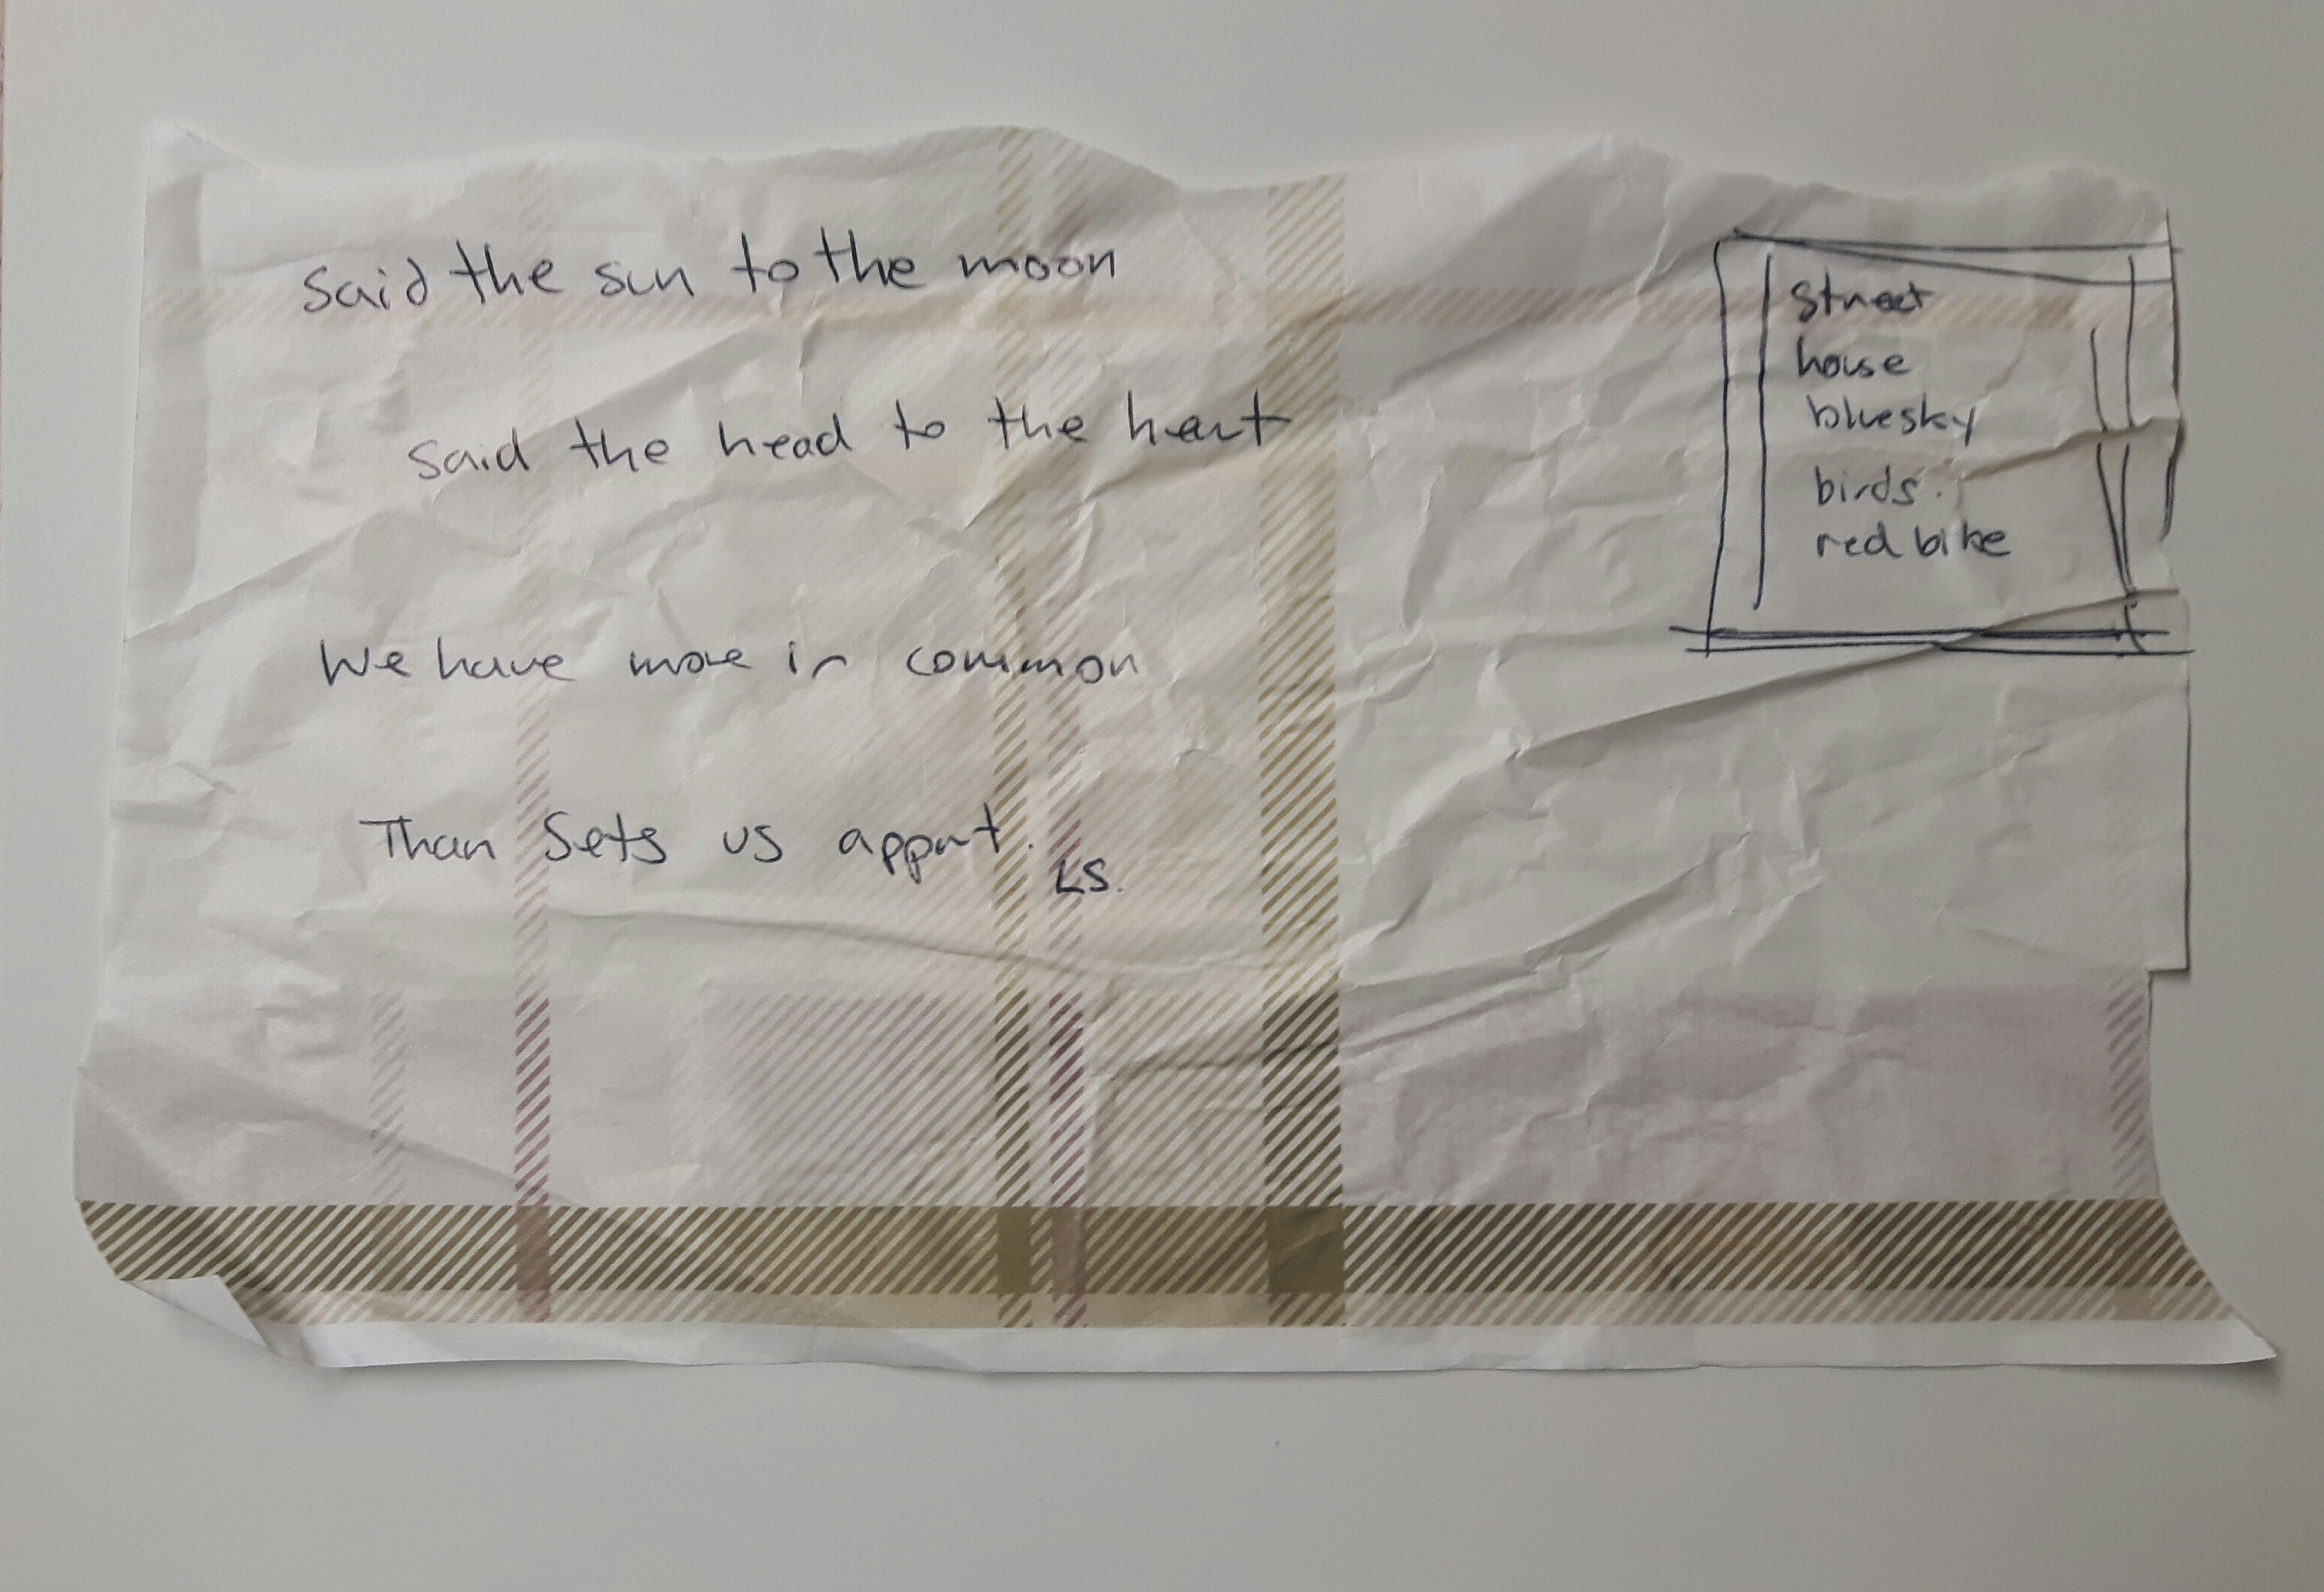 Said the sun to the moon
Said the head to the heart
We have more in common
Than Sets us appart.
LS.
Street
house
bluesky
birds.
red bike